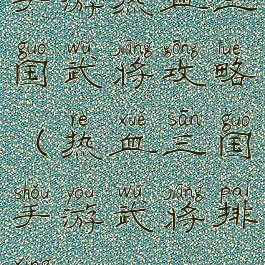 手游热血三
guó wǔ jiàng gōng lüè
国武将攻略
rè xuè sān guó
（热血三国
shǒu yóu wǔ jiàng pái
手游武将排
xíng